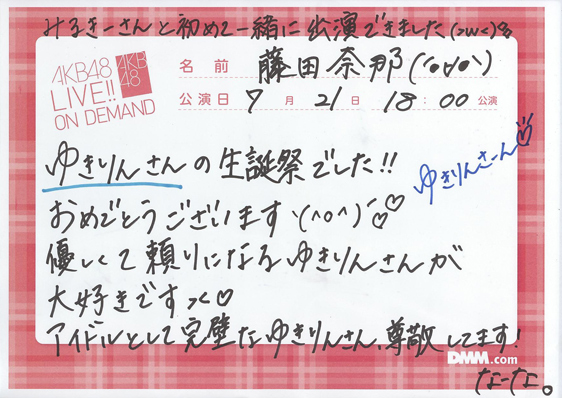 みるきーさんと初めて一緒に出演できました(>ω<)
AKB48
LIVE!!
ON DEMAND
AKB
48
名前 藤田奈那(`・o∀o・´)
公演日 7月21日 18:00公演
ゆきりんさんの生誕祭でした!!
ゆきりんさーん♡
おめでとうございますヽ(^o^)´♡♡
優しくて頼りになるゆきりんさんが
大好きですっ♡
アイドルとして完璧なゆきりんさん、尊敬してます!
DMM.com
なーな。